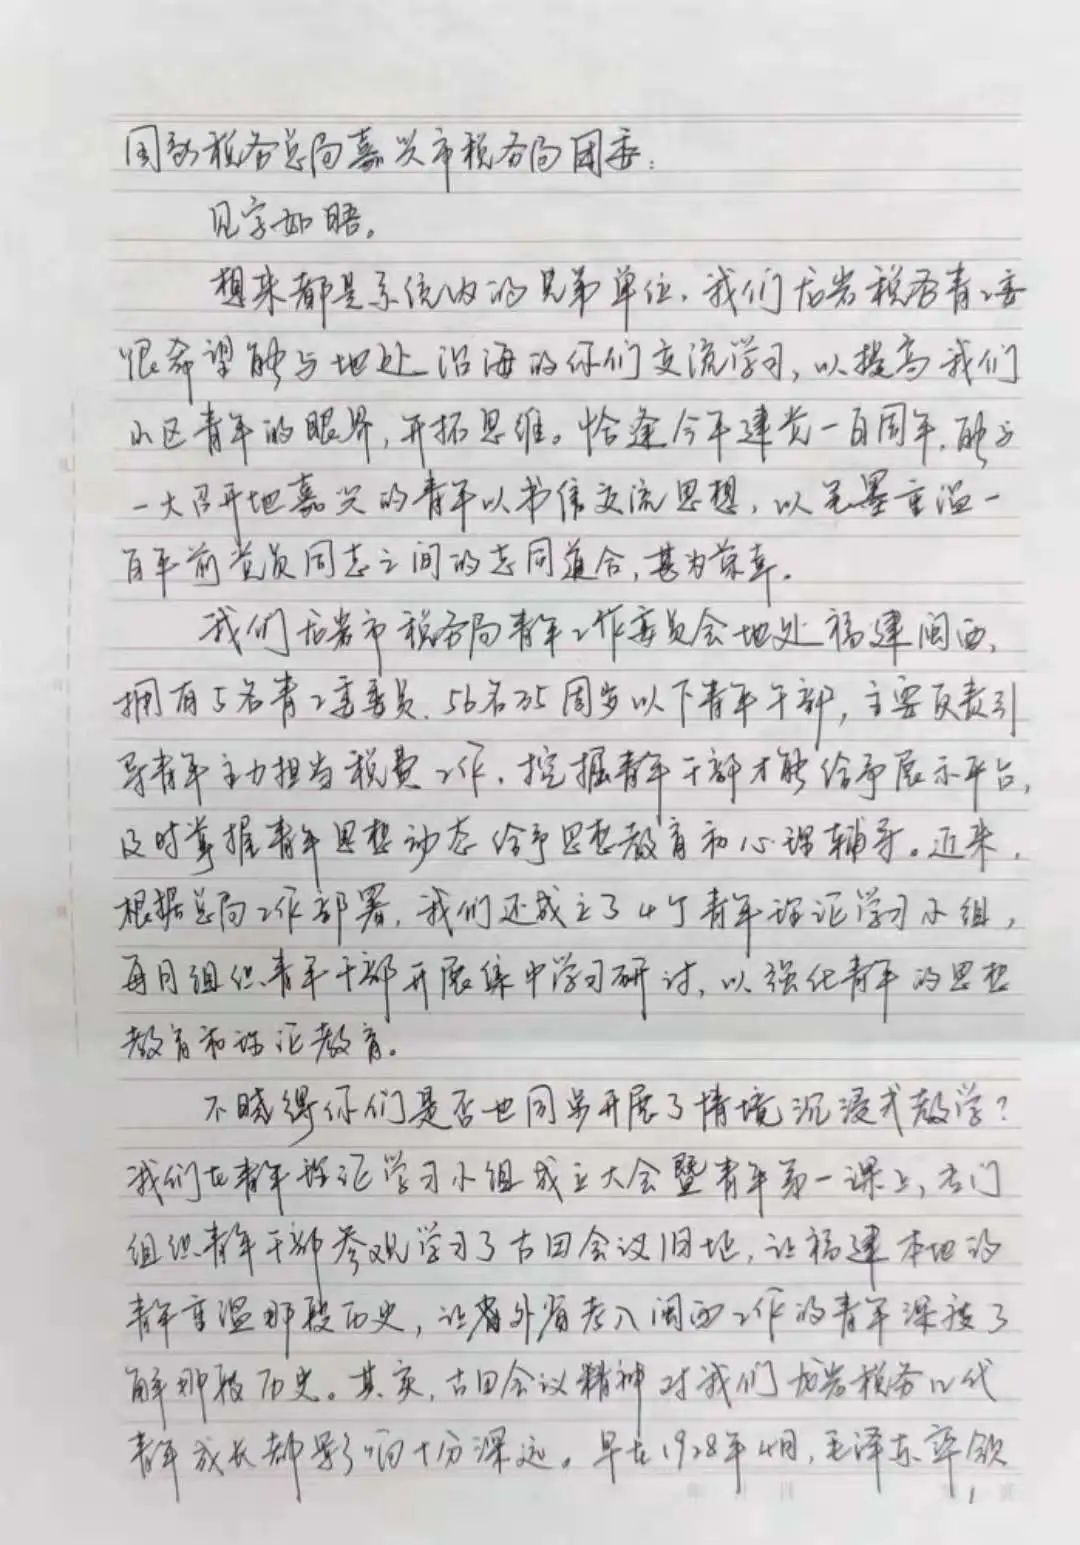 国家税务总局嘉兴市税务局团委：
见字如晤。
想来都是系统内的兄弟单位，我们龙岩税务青工委
很希望能与地处沿海的你们交流学习，以提高我们
山区青年的眼界，开拓思维。恰逢今年建党一百周年，能与
一大召开地嘉兴的青年以书信交流思想，以笔墨重温一
百年前党员同志之间的志同道合，甚为荣幸。
我们龙岩市税务局青年工作委员会地处福建闽西，
拥有5名青工委委员，56名35周岁以下青年干部，主要负责引
导青年主力担当税费工作，挖掘青年干部才能给予展示平台，
及时掌握青年思想动态给予思想教育和心理辅导。近来，
根据总局工作部署，我们还成立了4个青年理论学习小组，
每月组织青年干部开展集中学习研讨，以强化青年的思想
教育和理论教育。
不晓得你们是否也同步开展了情境沉浸式教学？
我们在青年理论学习小组成立大会暨青年第一课上，专门
组织青年干部参观学习了古田会议旧地，让福建本地的
青年重温那段历史，让省外省考入闽西工作的青年深度了
解那段历史。其实，古田会议精神对我们龙岩税务几代
青年成长都影响十分深远。早在1928年4月，毛泽东率领
1